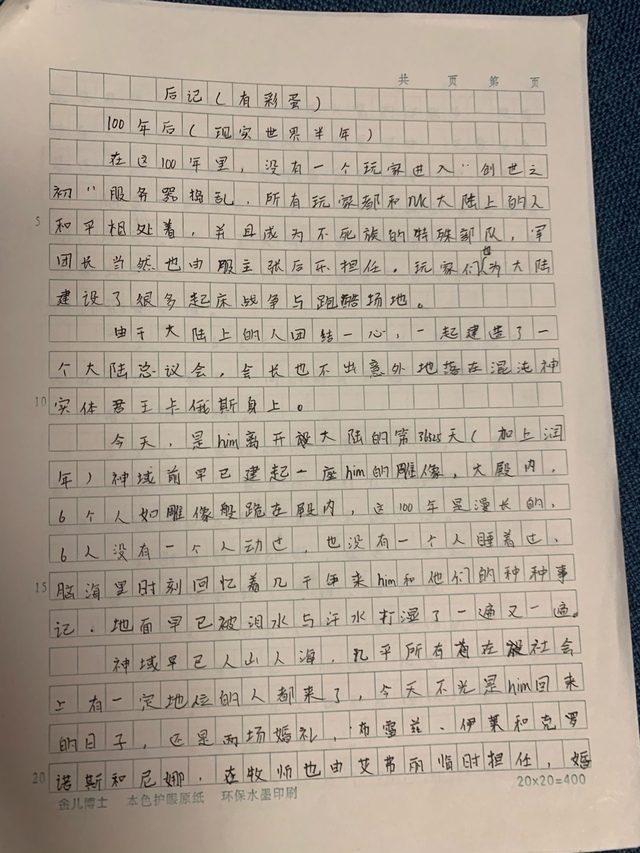 共 页 第 页
后记(有彩蛋)
100年后(现实世界半年)
在这100年里,没有一个玩家进入“创世之
初”服务器捣乱,所有玩家都和NK大陆上的人
5 和平相处着,并且成为不死族的特殊部队,军
团长当然也由服主张后乐担任。玩家们也为大陆
建设了很多起床战争与跑酷场地。
由于大陆上的人团结一心,一起建造了一
个大陆总议会,会长也不出意外地落在混沌神
10 实体君王卡俄斯身上。
今天,是him离开大陆的第36525天(加上润
年)神域前早已建起一座him的雕像,大殿内,
6个人如雕像般跪在殿内,这100年是漫长的,
6人没有一个人动过,也没有一个人睡着过,
15 脑海里时刻回忆着几千年来him和他们的种种事
记,地面早已被泪水与汗水打湿了一遍又一遍。
神域早已人山人海,几乎所有在社会
上有一定地位的人都来了,今天不光是him回来
的日子,还是两场婚礼,布雷兹、伊莱和克罗
20 诺斯和尼娜,连牧师也由艾弗丽临时担任,婚
金儿博士 本色护眼原纸 环保水墨印刷 20×20=400